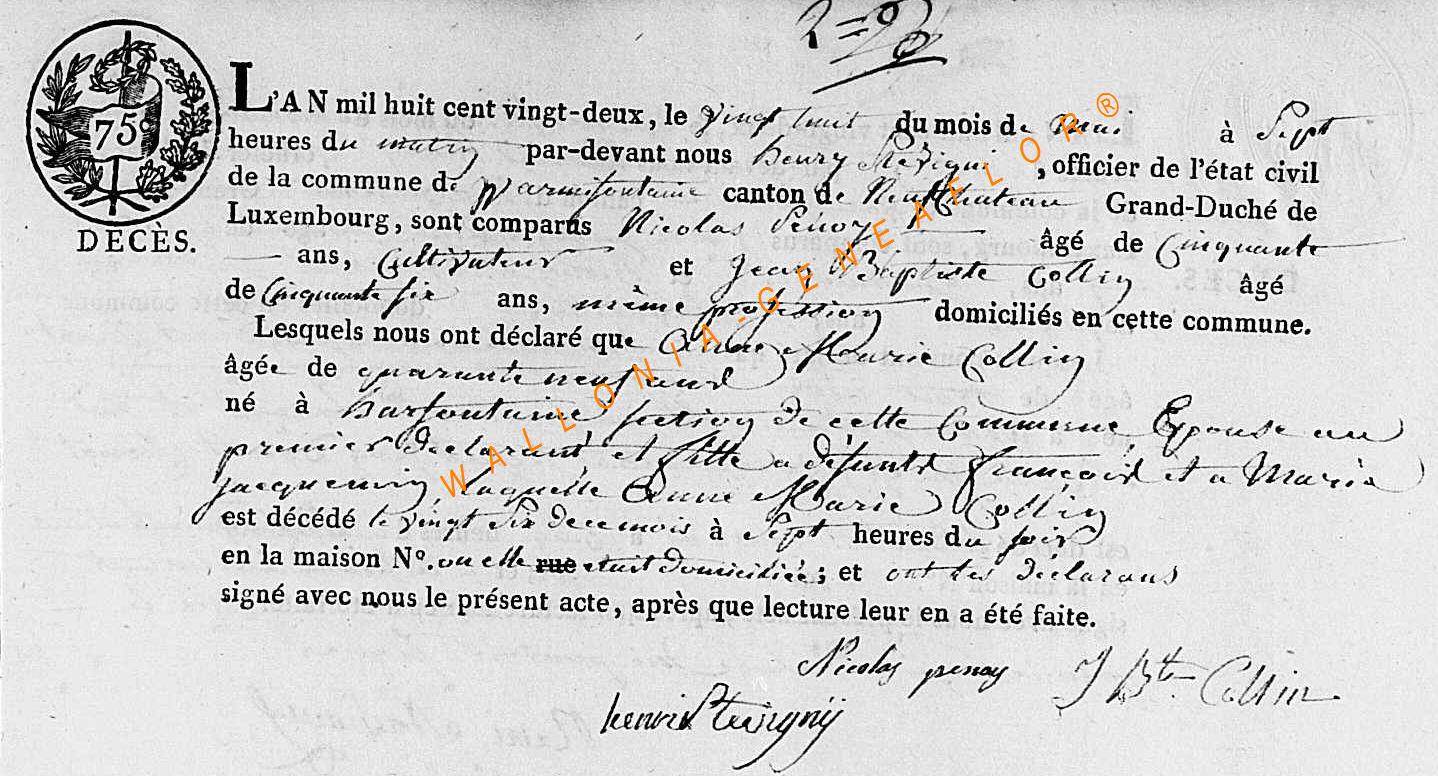 2=
75c
DECÈS.
L'AN mil huit cent vingt-deux, le vingt huit du mois de mai à Sept
heures du matin par-devant nous henry , officier de l'état civil
de la commune de Warmifontaine canton de Neufchateau Grand-Duché de
Luxembourg, sont comparus Nicolas Penoy âgé de Cinquante
ans, Cultivateur et Jean Baptiste Collin âgé
de Cinquante six ans, même profession domiciliés en cette commune.
Lesquels nous ont déclaré que Anne Marie Collin
âgée de quarante neuf ans
né à harfontaine section de cette Commune, Epouse au
premier declarant et fille a défunts françois et a Maria
jacquemin, laquelle Anne Marie Collin
est décédé le vingt six de ce mois à Sept heures du soir
en la maison N°. ou elle rue etait domiciliée; et ont les declarans
signé avec nous le présent acte, après que lecture leur en a été faite.
Nicolas penoy J Bte Collin
henri
WALLONIA-GENEAELOR®